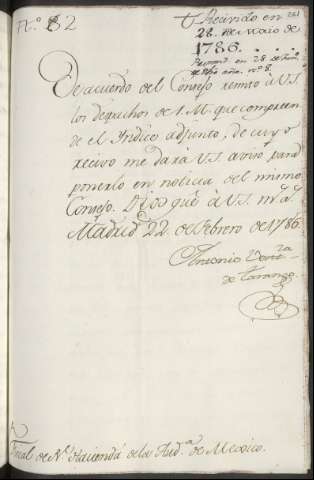 N.º 32
Recivido en 261
22. de Maio de
1786.
Respond. en 28 de
dho año, n.º 8.
De acuerdo del Consejo remito à V.S.
los despachos de S.M. que compreen-
de el Yndice adjunto, de cuyo
recivo me dará V.S. aviso para
ponerlo en noticia del mismo
Consejo. Dios gûe à V.S. m.s a.s
Madrid 22 de febrero de 1786.
Antonio Vent.ra
de Taranco.
Fiscal de R.l Hacienda de la Aud.a de Mexico.